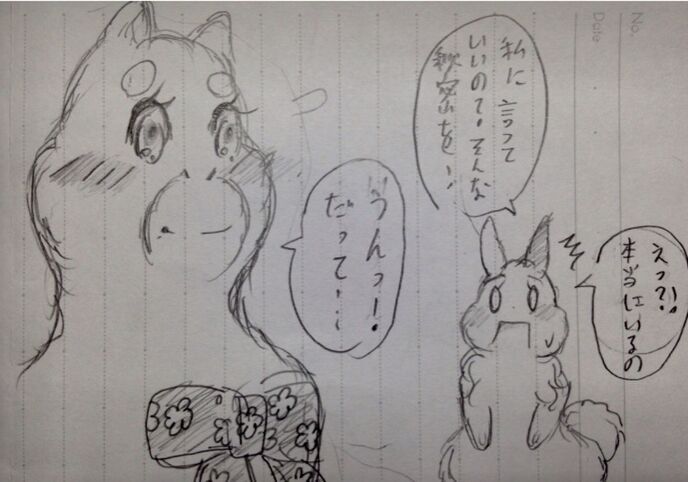 No.
Date
えっ?!
本当にいるの
私に言って
いいの?そんな
秘密を!
うんっ!
だって…